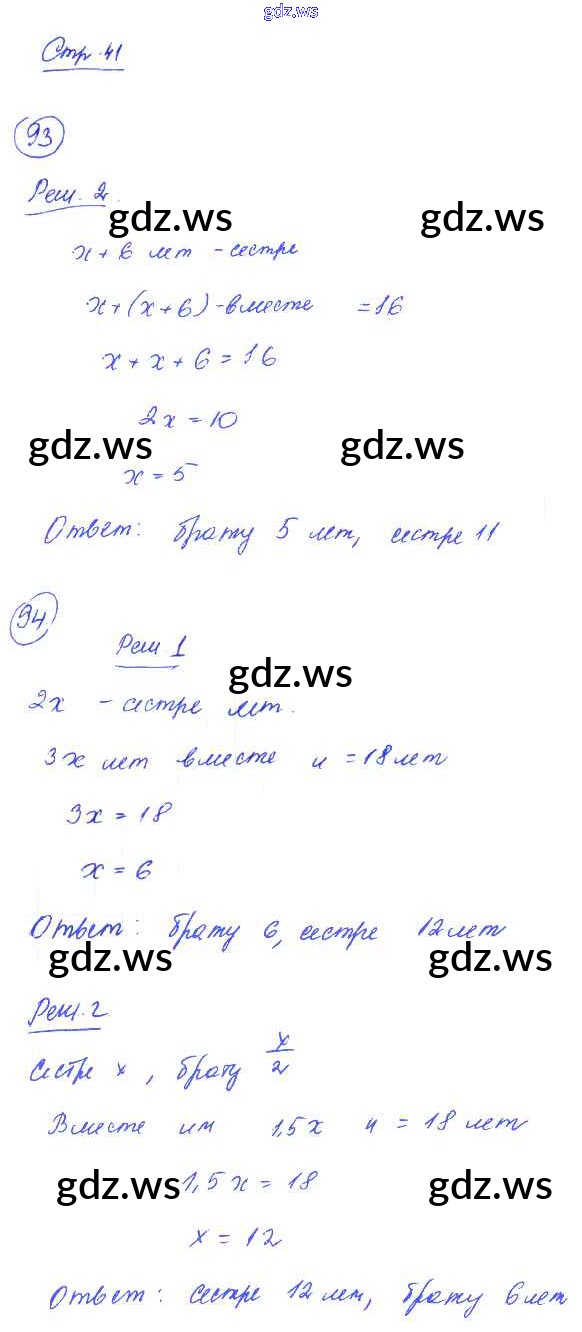 gdz.ws
Стр. 41
93
Реш. 2.
gdz.ws gdz.ws
x + 6 лет - сестре
x + (x + 6) - вместе = 16
x + x + 6 = 16
2x = 10
gdz.ws gdz.ws
x = 5
Ответ: брату 5 лет, сестре 11
94
Реш 1
gdz.ws
2x - сестре лет.
3x лет вместе и = 18 лет
3x = 18
x = 6
Ответ: брату 6, сестре 12 лет
gdz.ws gdz.ws
Реш. 2
Сестре x, брату x/2
Вместе им 1,5x и = 18 лет
gdz.ws gdz.ws
1,5x = 18
x = 12
Ответ: сестре 12 лет, брату 6 лет